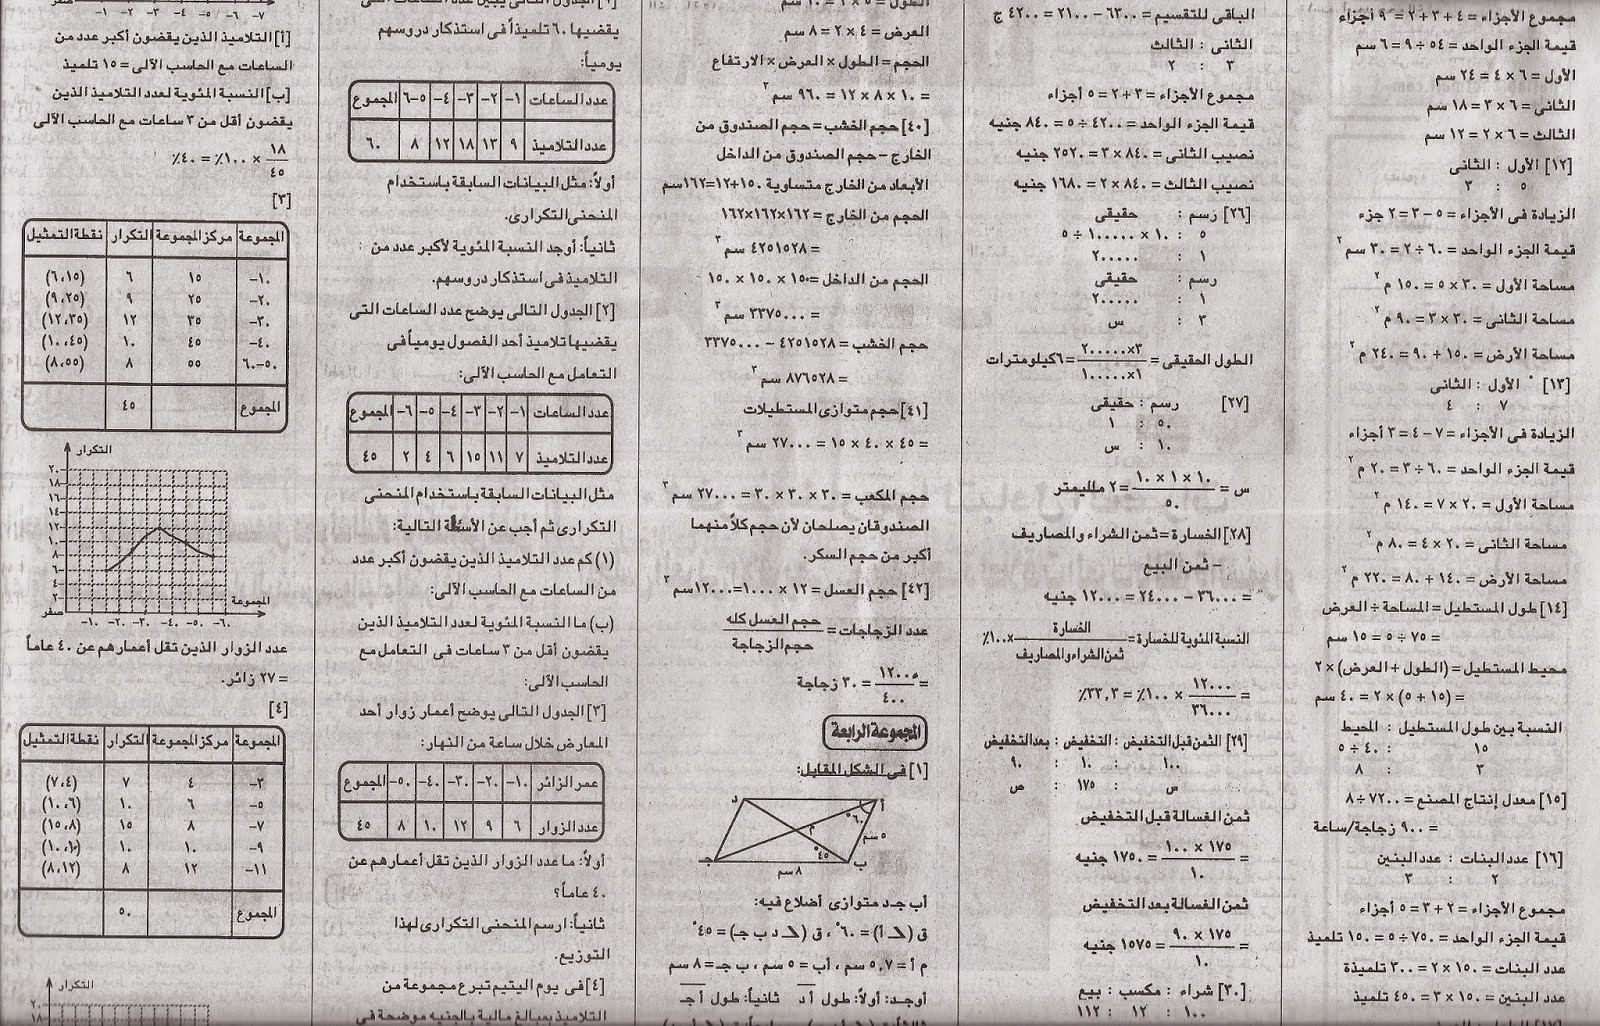 مجموع الأجزاء = ٤ + ٣ + ٢ = ٩ أجزاء
قيمة الجزء الواحد = ٥٤ ÷ ٩ = ٦ سم
الأول = ٦ × ٤ = ٢٤ سم
الثانى = ٦ × ٣ = ١٨ سم
الثالث = ٦ × ٢ = ١٢ سم
[١٢] الأول : الثانى
٥ : ٣
الزيادة فى الأجزاء = ٥ - ٣ = ٢ جزء
قيمة الجزء الواحد = ٦٠ ÷ ٢ = ٣٠ سم ٢
مساحة الأول = ٣٠ × ٥ = ١٥٠ م ٢
مساحة الثانى = ٣٠ × ٣ = ٩٠ م ٢
مساحة الأرض = ١٥٠ + ٩٠ = ٢٤٠ م ٢
[١٣] الأول : الثانى
٧ : ٤
الزيادة فى الأجزاء = ٧ - ٤ = ٣ أجزاء
قيمة الجزء الواحد = ٦٠ ÷ ٣ = ٢٠ م ٢
مساحة الأول = ٢٠ × ٧ = ١٤٠ م ٢
مساحة الثانى = ٢٠ × ٤ = ٨٠ م ٢
مساحة الأرض = ١٤٠ + ٨٠ = ٢٢٠ م ٢
[١٤] طول المستطيل = المساحة ÷ العرض
= ٧٥ ÷ ٥ = ١٥ سم
محيط المستطيل = (الطول + العرض) × ٢
= (١٥ + ٥) × ٢ = ٤٠ سم
النسبة بين طول المستطيل : المحيط
١٥ : ٤٠ ÷ ٥
٣ : ٨
[١٥] معدل إنتاج المصنع = ٧٢٠٠ ÷ ٨
= ٩٠٠ زجاجة/ساعة
[١٦] عدد البنات : عدد البنين
٢ : ٣
مجموع الأجزاء = ٢ + ٣ = ٥ أجزاء
قيمة الجزء الواحد = ٧٥٠ ÷ ٥ = ١٥٠ تلميذ
عدد البنات = ١٥٠ × ٢ = ٣٠٠ تلميذة
عدد البنين = ١٥٠ × ٣ = ٤٥٠ تلميذ
الباقى للتقسيم = ٦٣٠٠ - ٢١٠٠ = ٤٢٠٠ ج
الثانى : الثالث
٣ : ٢
مجموع الأجزاء = ٣ + ٢ = ٥ أجزاء
قيمة الجزء الواحد = ٤٢٠٠ ÷ ٥ = ٨٤٠ جنيه
نصيب الثانى = ٨٤٠ × ٣ = ٢٥٢٠ جنيه
نصيب الثالث = ٨٤٠ × ٢ = ١٦٨٠ جنيه
[٢٦] رسم : حقيقى
٥ : ١٠ × ١٠٠٠٠٠ ÷ ٥
١ : ٢٠٠٠٠٠
رسم : حقيقى
١ : ٢٠٠٠٠٠
٣ : س
الطول الحقيقى = ٣×٢٠٠٠٠٠ / ١×١٠٠٠٠٠ = ٦ كيلومترات
[٢٧] رسم : حقيقى
٥٠ : ١
١٠ : س
س = ١٠ × ١ × ١٠ / ٥٠ = ٢ ملليمتر
[٢٨] الخسارة = ثمن الشراء والمصاريف
- ثمن البيع
= ٣٦٠٠٠ - ٢٤٠٠٠ = ١٢٠٠٠ جنيه
النسبة المئوية للخسارة = الخسارة / ثمن الشراء والمصاريف × ١٠٠٪
= ١٢٠٠٠ / ٣٦٠٠٠ × ١٠٠٪ = ٣٣,٣٪
[٢٩] الثمن قبل التخفيض : التخفيض : بعد التخفيض
١٠٠ : ١٠ : ٩٠
س : ١٧٥ : ص
ثمن الغسالة قبل التخفيض
= ١٧٥ × ١٠٠ / ١٠ = ١٧٥٠ جنيه
ثمن الغسالة بعد التخفيض
= ١٧٥ × ٩٠ / ١٠ = ١٥٧٥ جنيه
[٣٠] شراء : مكسب : بيع
١٠٠ : ١٢ : ١١٢
العرض = ٤ × ٢ = ٨ سم
الحجم = الطول × العرض × الارتفاع
= ١٠ × ٨ × ١٢ = ٩٦٠ سم ٣
[٤٠] حجم الخشب = حجم الصندوق من
الخارج - حجم الصندوق من الداخل
الأبعاد من الخارج متساوية ١٥٠+١٢=١٦٢سم
الحجم من الخارج = ١٦٢×١٦٢×١٦٢
= ٤٢٥١٥٢٨ سم ٣
الحجم من الداخل = ١٥٠ × ١٥٠ × ١٥٠
= ٣٣٧٥٠٠٠ سم ٣
حجم الخشب = ٤٢٥١٥٢٨ - ٣٣٧٥٠٠٠
= ٨٧٦٥٢٨ سم ٣
[٤١] حجم متوازى المستطيلات
= ٤٥ × ٤٠ × ١٥ = ٢٧٠٠٠ سم ٣
حجم المكعب = ٣٠ × ٣٠ × ٣٠ = ٢٧٠٠٠ سم ٣
الصندوقان يصلحان لأن حجم كلاً منهما
أكبر من حجم السكر.
[٤٢] حجم العسل = ١٢ × ١٠٠٠ = ١٢٠٠٠سم ٣
عدد الزجاجات = حجم العسل كله / حجم الزجاجة
= ١٢٠٠٠ / ٤٠٠ = ٣٠ زجاجة
المجموعة الرابعة
[١] فى الشكل المقابل:
د أ
٦٠° م ٥ سم
٤٥°
جـ ب
٨ سم
أ ب جـ د متوازى أضلاع فيه:
ق (أ) = ٦٠°، ق (د ب جـ) = ٤٥°
م أ = ٥,٧ سم ، أب = ٥ سم ، ب جـ = ٨ سم
أوجد: أولاً: طول أ د ثانياً: طول أ جـ
يقضيها ٦٠ تلميذاً فى استذكار دروسهم
يومياً:
عدد الساعات ١- ٢- ٣- ٤- ٥-٦ المجموع
عدد التلاميذ ٩ ١٣ ١٨ ١٢ ٨ ٦٠
أولاً: مثل البيانات السابقة باستخدام
المنحنى التكرارى.
ثانياً: أوجد النسبة المئوية لأكبر عدد من
التلاميذ فى استذكار دروسهم.
[٢] الجدول التالى يوضح عدد الساعات التى
يقضيها تلاميذ أحد الفصول يومياً فى
التعامل مع الحاسب الآلى:
عدد الساعات ١- ٢- ٣- ٤- ٥- ٦- المجموع
عدد التلاميذ ٧ ١١ ١٥ ٦ ٤ ٢ ٤٥
مثل البيانات السابقة باستخدام المنحنى
التكرارى ثم أجب عن الأسئلة التالية:
(١) كم عدد التلاميذ الذين يقضون أكبر عدد
من الساعات مع الحاسب الآلى:
(ب) ما النسبة المئوية لعدد التلاميذ الذين
يقضون أقل من ٣ ساعات فى التعامل مع
الحاسب الآلى:
[٣] الجدول التالى يوضح أعمار زوار أحد
المعارض خلال ساعة من النهار:
عمر الزائر ١٠- ٢٠- ٣٠- ٤٠- ٥٠- المجموع
عدد الزوار ٦ ٩ ١٢ ١٠ ٨ ٤٥
أولاً: ما عدد الزوار الذين تقل أعمارهم عن
٤٠ عاماً؟
ثانياً: ارسم المنحنى التكرارى لهذا
التوزيع.
[٤] فى يوم اليتيم تبرع مجموعة من
التلاميذ بمبالغ مالية بالجنيه موضحة فى
صفر ١- ٢- ٣- ٤- ٥- ٦- ٧-
[أ] التلاميذ الذين يقضون أكبر عدد من
الساعات مع الحاسب الآلى = ١٥ تلميذ
[ب] النسبة المئوية لعدد التلاميذ الذين
يقضون أقل من ٣ ساعات مع الحاسب الآلى
١٨ / ٤٥ × ١٠٠٪ = ٤٠٪
[٣]
المجموعة مركز المجموعة التكرار نقطة التمثيل
١٠- ١٥ ٦ (٦،١٥)
٢٠- ٢٥ ٩ (٩،٢٥)
٣٠- ٣٥ ١٢ (١٢،٣٥)
٤٠- ٤٥ ١٠ (١٠،٤٥)
٥٠-٦٠ ٥٥ ٨ (٨،٥٥)
المجموع ٤٥
التكرار
٢٠
١٨
١٦
١٤
١٢
١٠
٨
٦
٤
٢
المجموعة
صفر ١٠- ٢٠- ٣٠- ٤٠- ٥٠- ٦٠-
عدد الزوار الذين تقل أعمارهم عن ٤٠ عاماً
= ٢٧ زائر.
[٤]
المجموعة مركز المجموعة التكرار نقطة التمثيل
٣- ٤ ٧ (٧،٤)
٥- ٦ ١٠ (١٠،٦)
٧- ٨ ١٥ (١٥،٨)
٩- ١٠ ١٠ (١٠،١٠)
١١- ١٢ ٨ (٨،١٢)
المجموع ٥٠
التكرار
٢٠
١٨